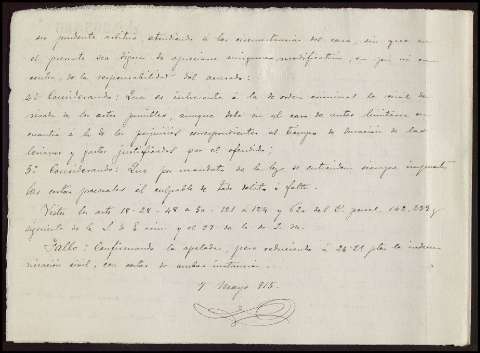 su prudente arbitrio atendiendo á las circunstancias del caso, sin que en
el presente sea digna de apreciarse ninguna modificativa, en pro ni en
contra, de la responsabilidad del acusado:
2º Considerando: Que es inherente á la de orden criminal la civil
de los actos punibles, aunque debe en el caso de autos limitarse en
cuantía á la de los perjuicios correspondientes al tiempo de duración de las
lesiones y gastos justificados por el ofendido;
3º Considerando: Que por mandato de la ley se entienden siempre impuestas
las costas procesales al culpable de todo delito ó falta.
Vistos los arts 18-28-48 á 50-121 á 124 y 620 del C. penal, 142, 239 y
siguiente de la L. de E. crim. y el 27 de la de J. M.
Fallo: Confirmando la apelada, pero reduciendo á ptas la indem-
nización civil, con costas de ambas instancias.
Mayo 915.